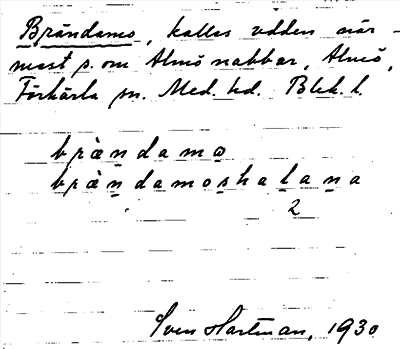 Brändamo, kallas udden när-
mast s. om Almö nabbar, Almö,
Förkärla sn. Med. hd. Blek. l.
bràndamω
bràndamoshalana
2
Sven Hartman, 1930